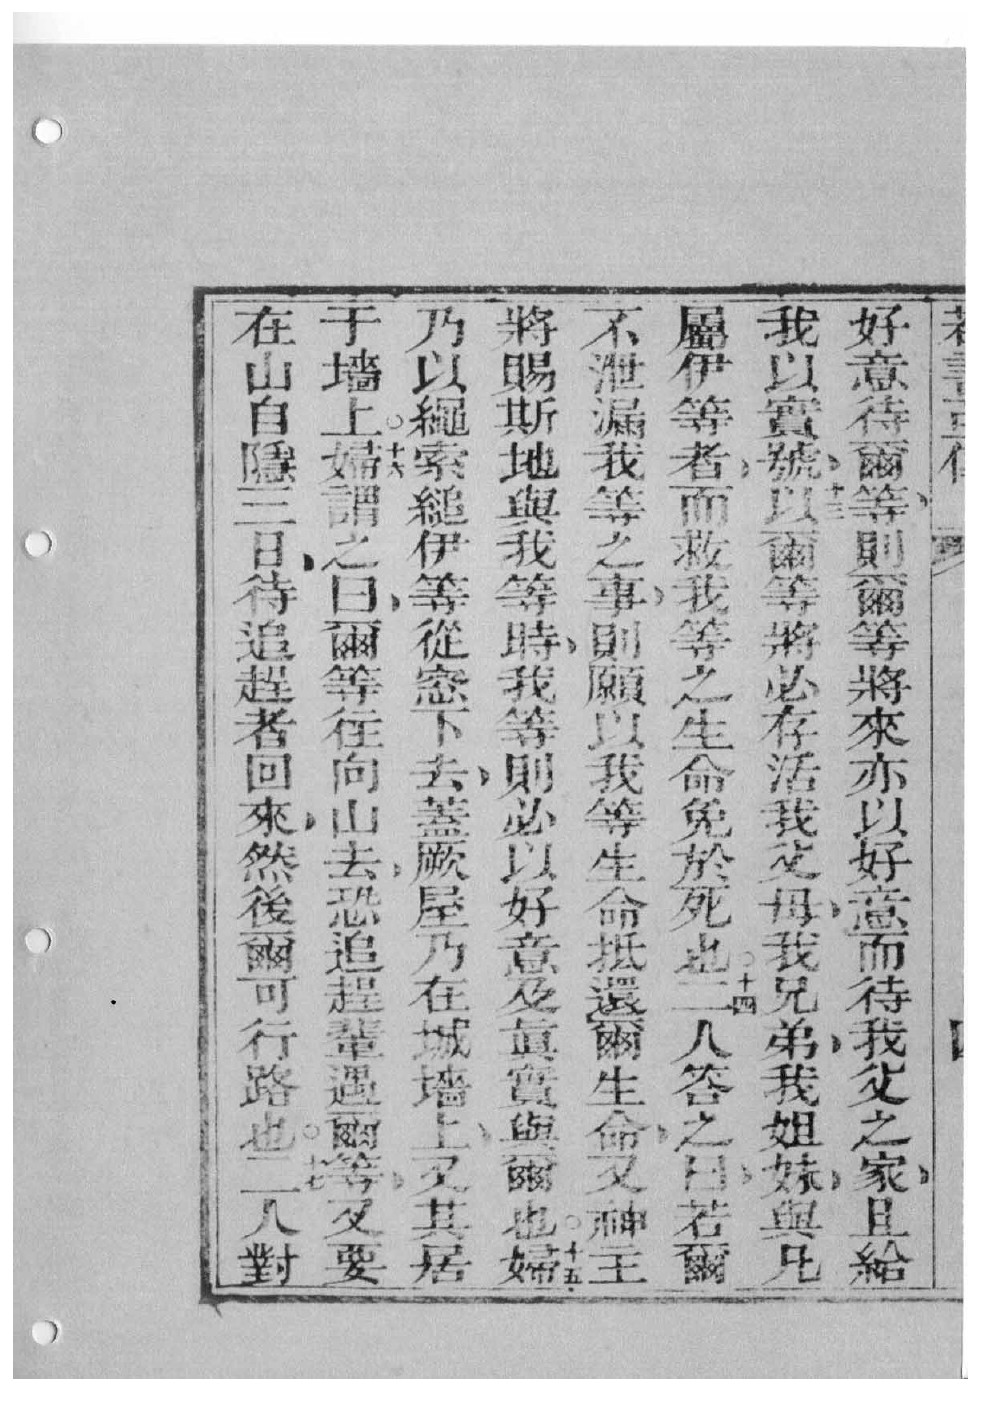 好意待爾等則爾等將來亦以好意而待我父之家且給
我以實號十三以爾等將必存活我父母我兄弟我姐妹與凡
屬伊等者而救我等之生命免於死也○十四二人答之曰若爾
不泄漏我等之事則願以我等生命抵還爾生命又神主
將賜斯地與我等時我等則必以好意及眞實與爾也○十五婦
乃以繩索縋伊等從窓下去蓋厥屋乃在城墻上又其居
于墻上○十六婦謂之曰爾等往向山去恐追趕輩遇爾等又要
在山自隱三日待追趕者回來然後爾可行路也○十七二人對